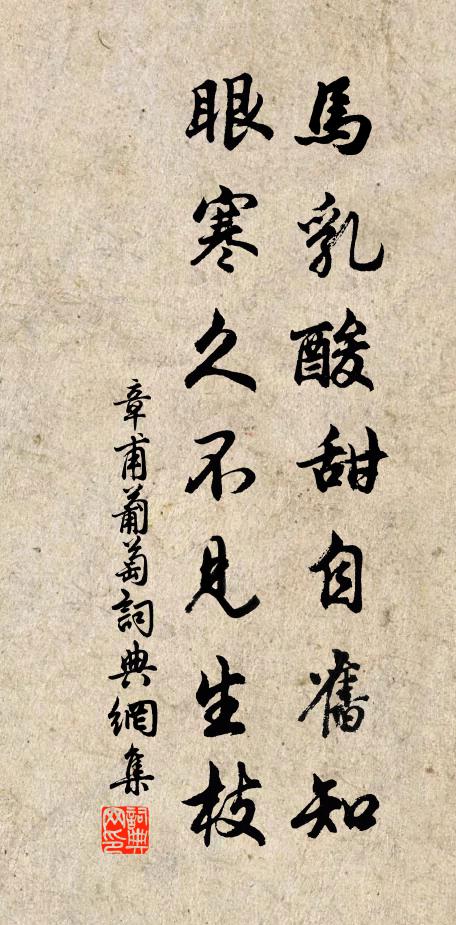 馬乳酸甜自舊知
眼寒久不見生枝
章甫葡萄詞典網集
詞典网印